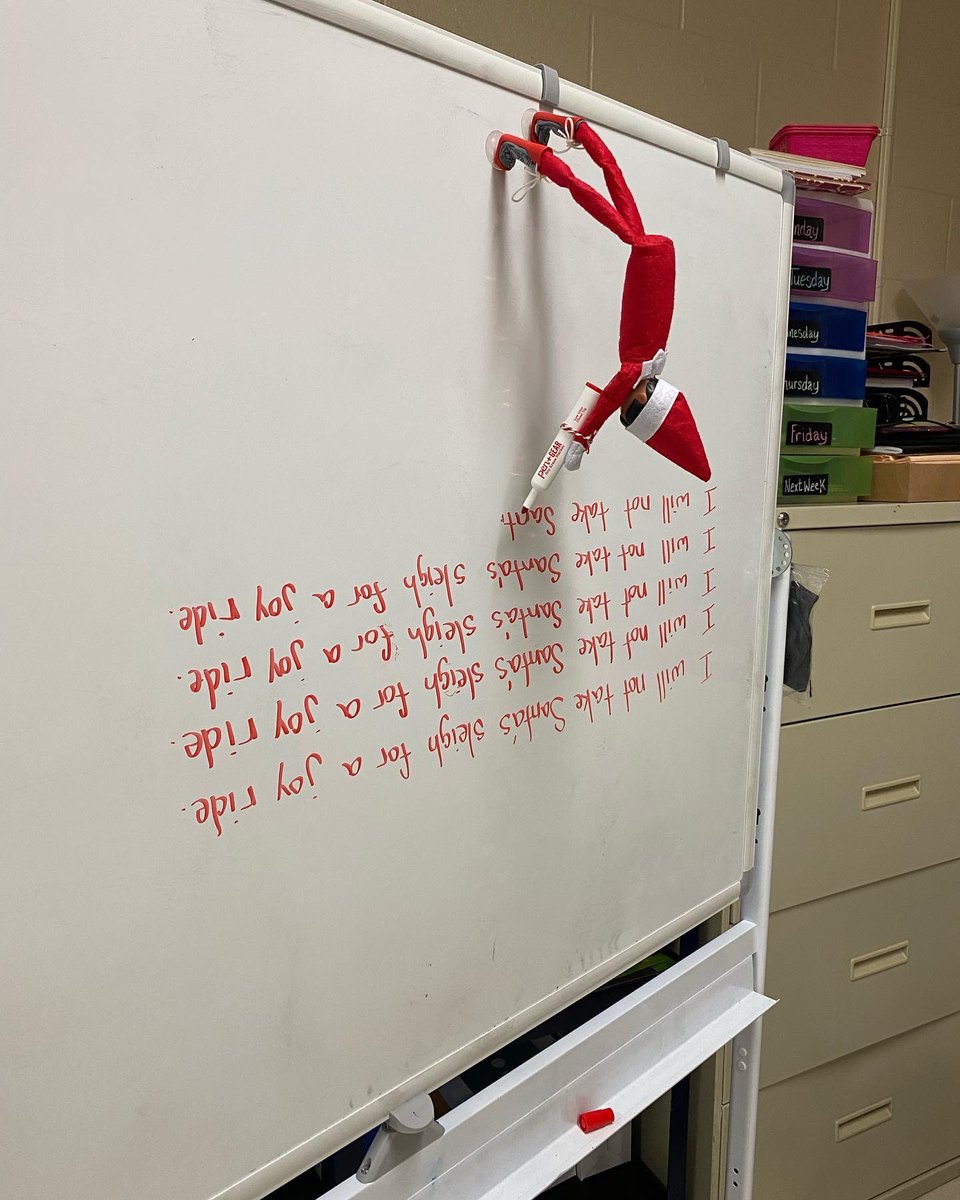 I will not take Santa's sleigh for a joy ride.
I will not take Santa's sleigh for a joy ride.
I will not take Santa's sleigh for a joy ride.
I will not take Santa's sleigh for a joy ride.
I will not take Sant
pen+GEAR
nday
Tuesday
nesday
hursday
Friday
Next Week